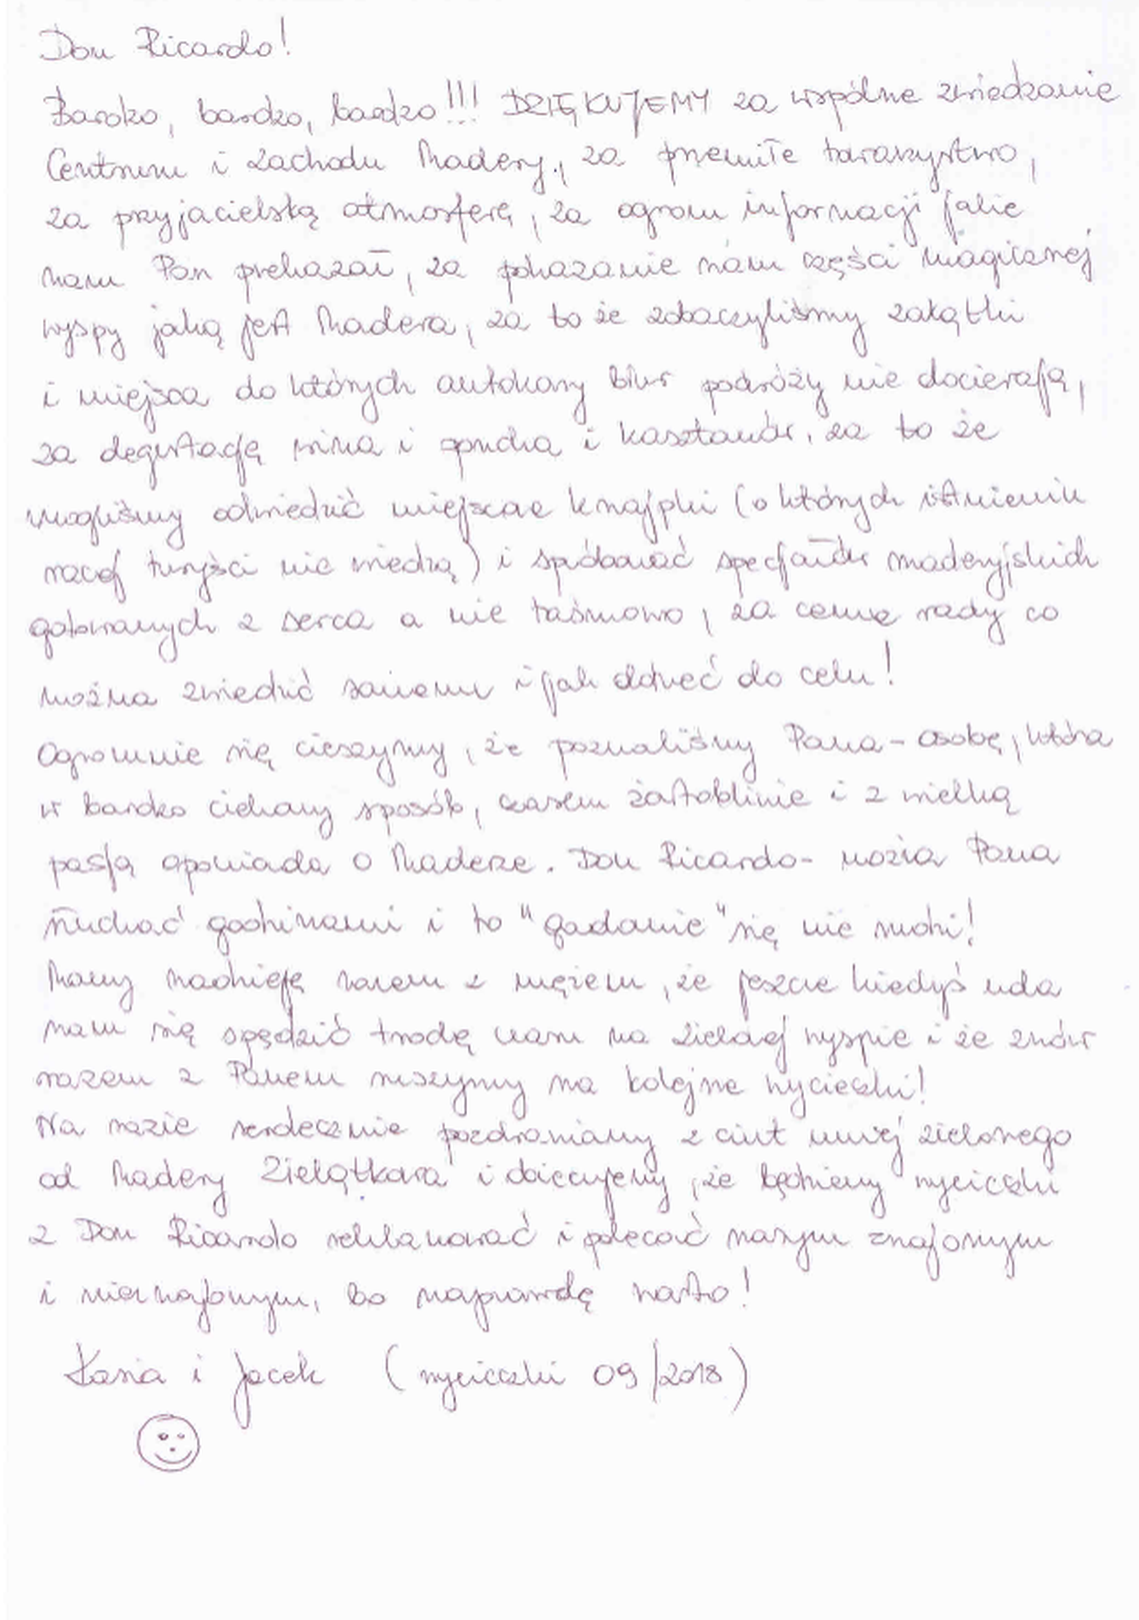 Don Ricardo!
Bardzo, bardzo, bardzo!!! DZIĘKUJEMY za wspólne zwiedzanie
Centrum i Zachodu Madery, za przemiłe towarzystwo,
za przyjacielską atmosferę, za ogrom informacji jakie
nam Pan przekazał, za pokazanie nam części magicznej
wyspy jaką jest Madera, za to że zobaczyliśmy zakątki
i miejsca do których autokary biur podróży nie docierają,
za degustację wina i poncha i kasztanów, za to że
mogliśmy odwiedzić miejscowe knajpki (o których istnieniu
raczej turyści nie wiedzą) i spróbować specjałów maderyjskich
gotowanych z serca a nie taśmowo, za cenne rady co
można zwiedzić samemu i jak dotrzeć do celu!
Ogromnie się cieszymy, że poznaliśmy Pana - osobę, która
w bardzo ciekawy sposób, czasem żartobliwie i z wielką
pasją opowiada o Maderze. Don Ricardo - można Pana
słuchać godzinami i to "gadanie" się nie nudzi!
Mamy nadzieję razem z mężem, że jeszcze kiedyś uda
nam się spędzić trochę czasu na Zielonej wyspie i że znów
razem z Panem ruszymy na kolejne wycieczki!
Na razie serdecznie pozdrawiamy z ciut mniej zielonego
od Madery Zielątkowa i obiecujemy, że będziemy wycieczki
z Don Ricardo reklamować i polecać naszym znajomym
i nieznajomym, bo naprawdę warto!
Kasia i Jacek (wycieczki 09/2018)